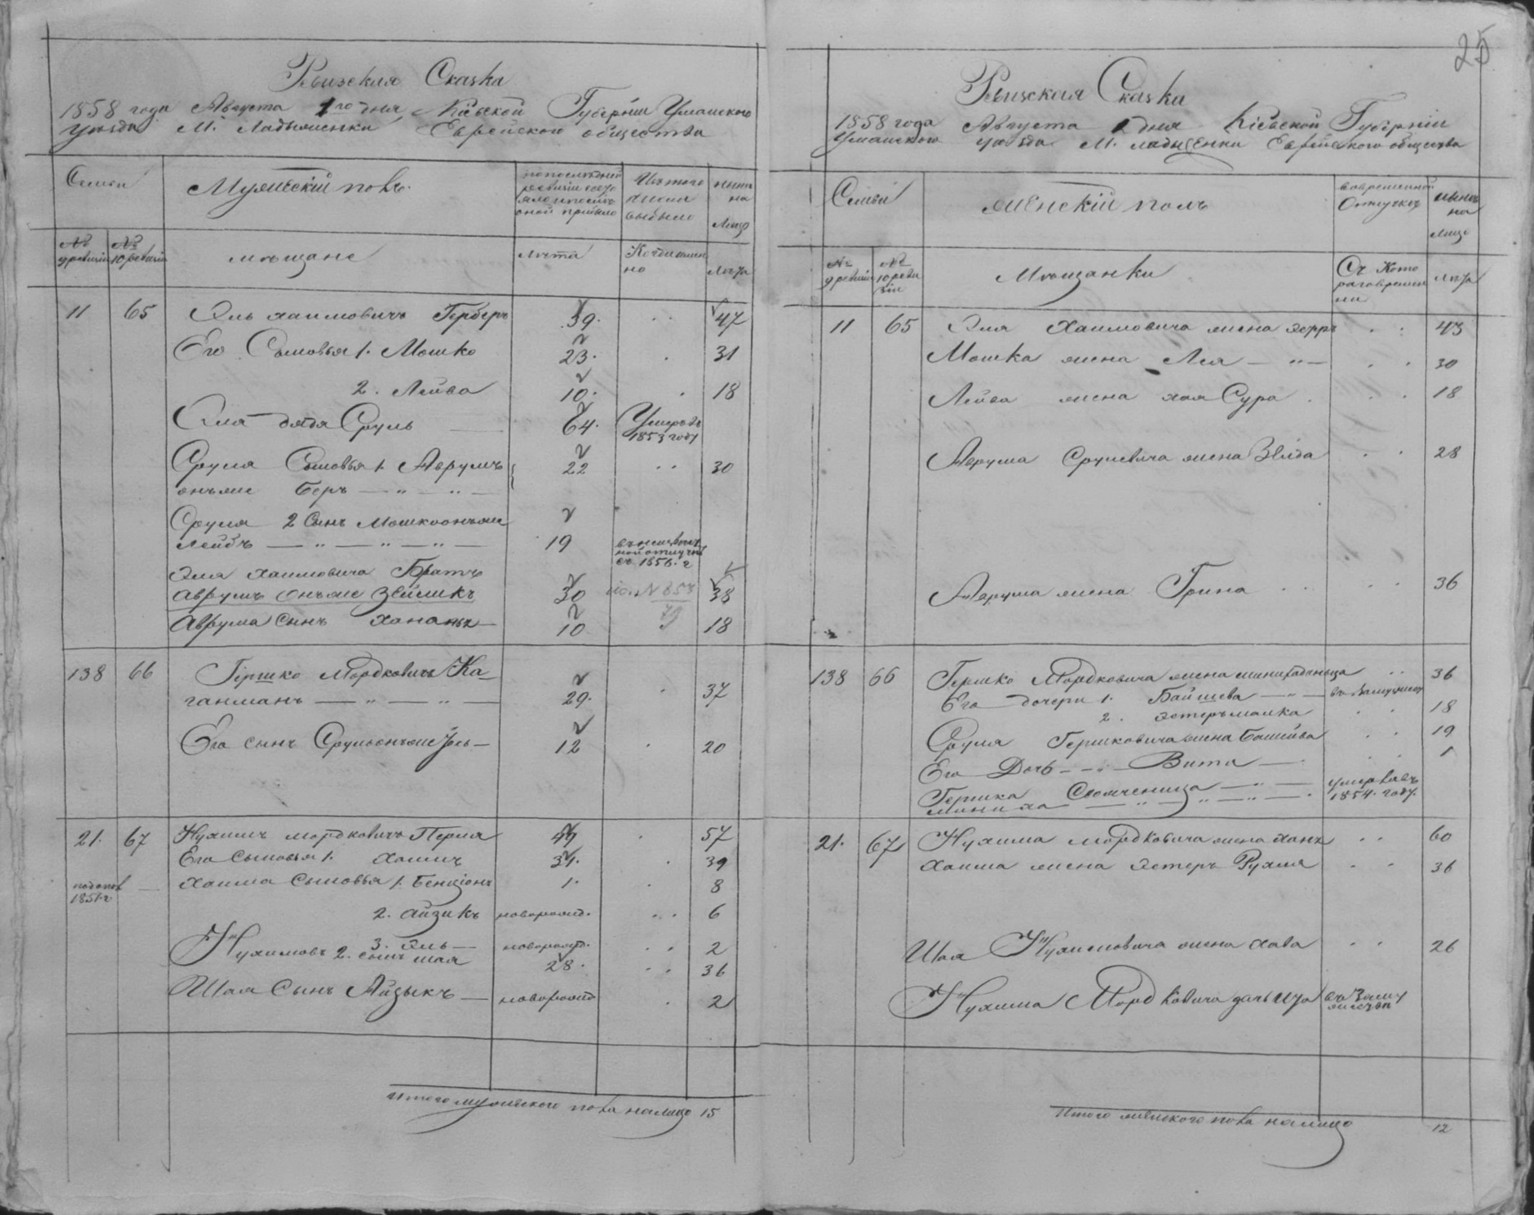 25
Ревизская Сказка
1858 года Августа 1го дня, Кіевской Губерніи Уманского
уезда М. Ладыженки Еврейского общества
Семьи
Мужескій полъ.
Изъ того
числа
выбыло
ныне
на
Лицо
№ 9 ревизіи
№ 10 ревизіи
мещане
лета
Когда имянно
Лета
11 65 Эль Хаимовичъ Герберъ 39. 47
Его Сыновья 1. Мошко 23. 31
2. Лейва 10. 18
Эля дядя Сруль 64. Умеръ въ
1853 году
Сруля Сыновья 1. Аврумъ 22 30
онъже Беръ
Сруля 2 Сынъ Мошко онъже
Лейбъ 19
съ 1856. г
Эля Хаимовича Братъ
Аврумъ онъже Зейликъ 30 38
Аврума Сынъ Ханань 10 18
138 66 Гершко Мордковичъ Ка-
ганманъ 29. 37
Его сынъ Сруль онъже Іось 12 20
21. 67 Нухимъ мордковичъ Перля 49 57
Его Сыновья 1. Хаимъ 31. 39
1851 г.
Хаима Сыновья 1. Бенціонъ 1. 8
2. Айзикъ новорожд. 6
3. Эль новорожд. 2
Нухимовъ 2. сынъ шая 28. 36
Шая Сынъ Айзыкъ новорожд 2
Итого мужеского пола на лицо 15
Ревизская Сказка
1858 года Августа 1 дня Кіевской Губерніи
Уманского уезда М. Ладыженки Еврейского общества
Семьи
женскій полъ
во временной
Отлучке
ныне
на
лицо
№ 9 ревизіи
№ 10 ревизіи
Мещанки
Съ Кото
раго времени
лета
11 65 Эля Хаимовича жена 43
Мошка жена Лея 30
Лейва жена хая Сура 18
Аврума Срулевича жена Зелда 28
Аврума жена Грина 36
138 66 Гершко Мордковича жена 36
Его дочери 1. Байшева въ Замужест
2. Эстеръ малка 18
Сруля Гершковича жена Башива 19
Его Дочь Вита 1
Гершка умерла въ
1854. году
21. 67 Нухима мордковича жена Хана 60
Хаима жена Эстеръ Рухля 36
Шая Нухимовича жена Хава 26
Нухима Мордковича дочь въ Заму
жестве
Итого женского пола на лицо 12